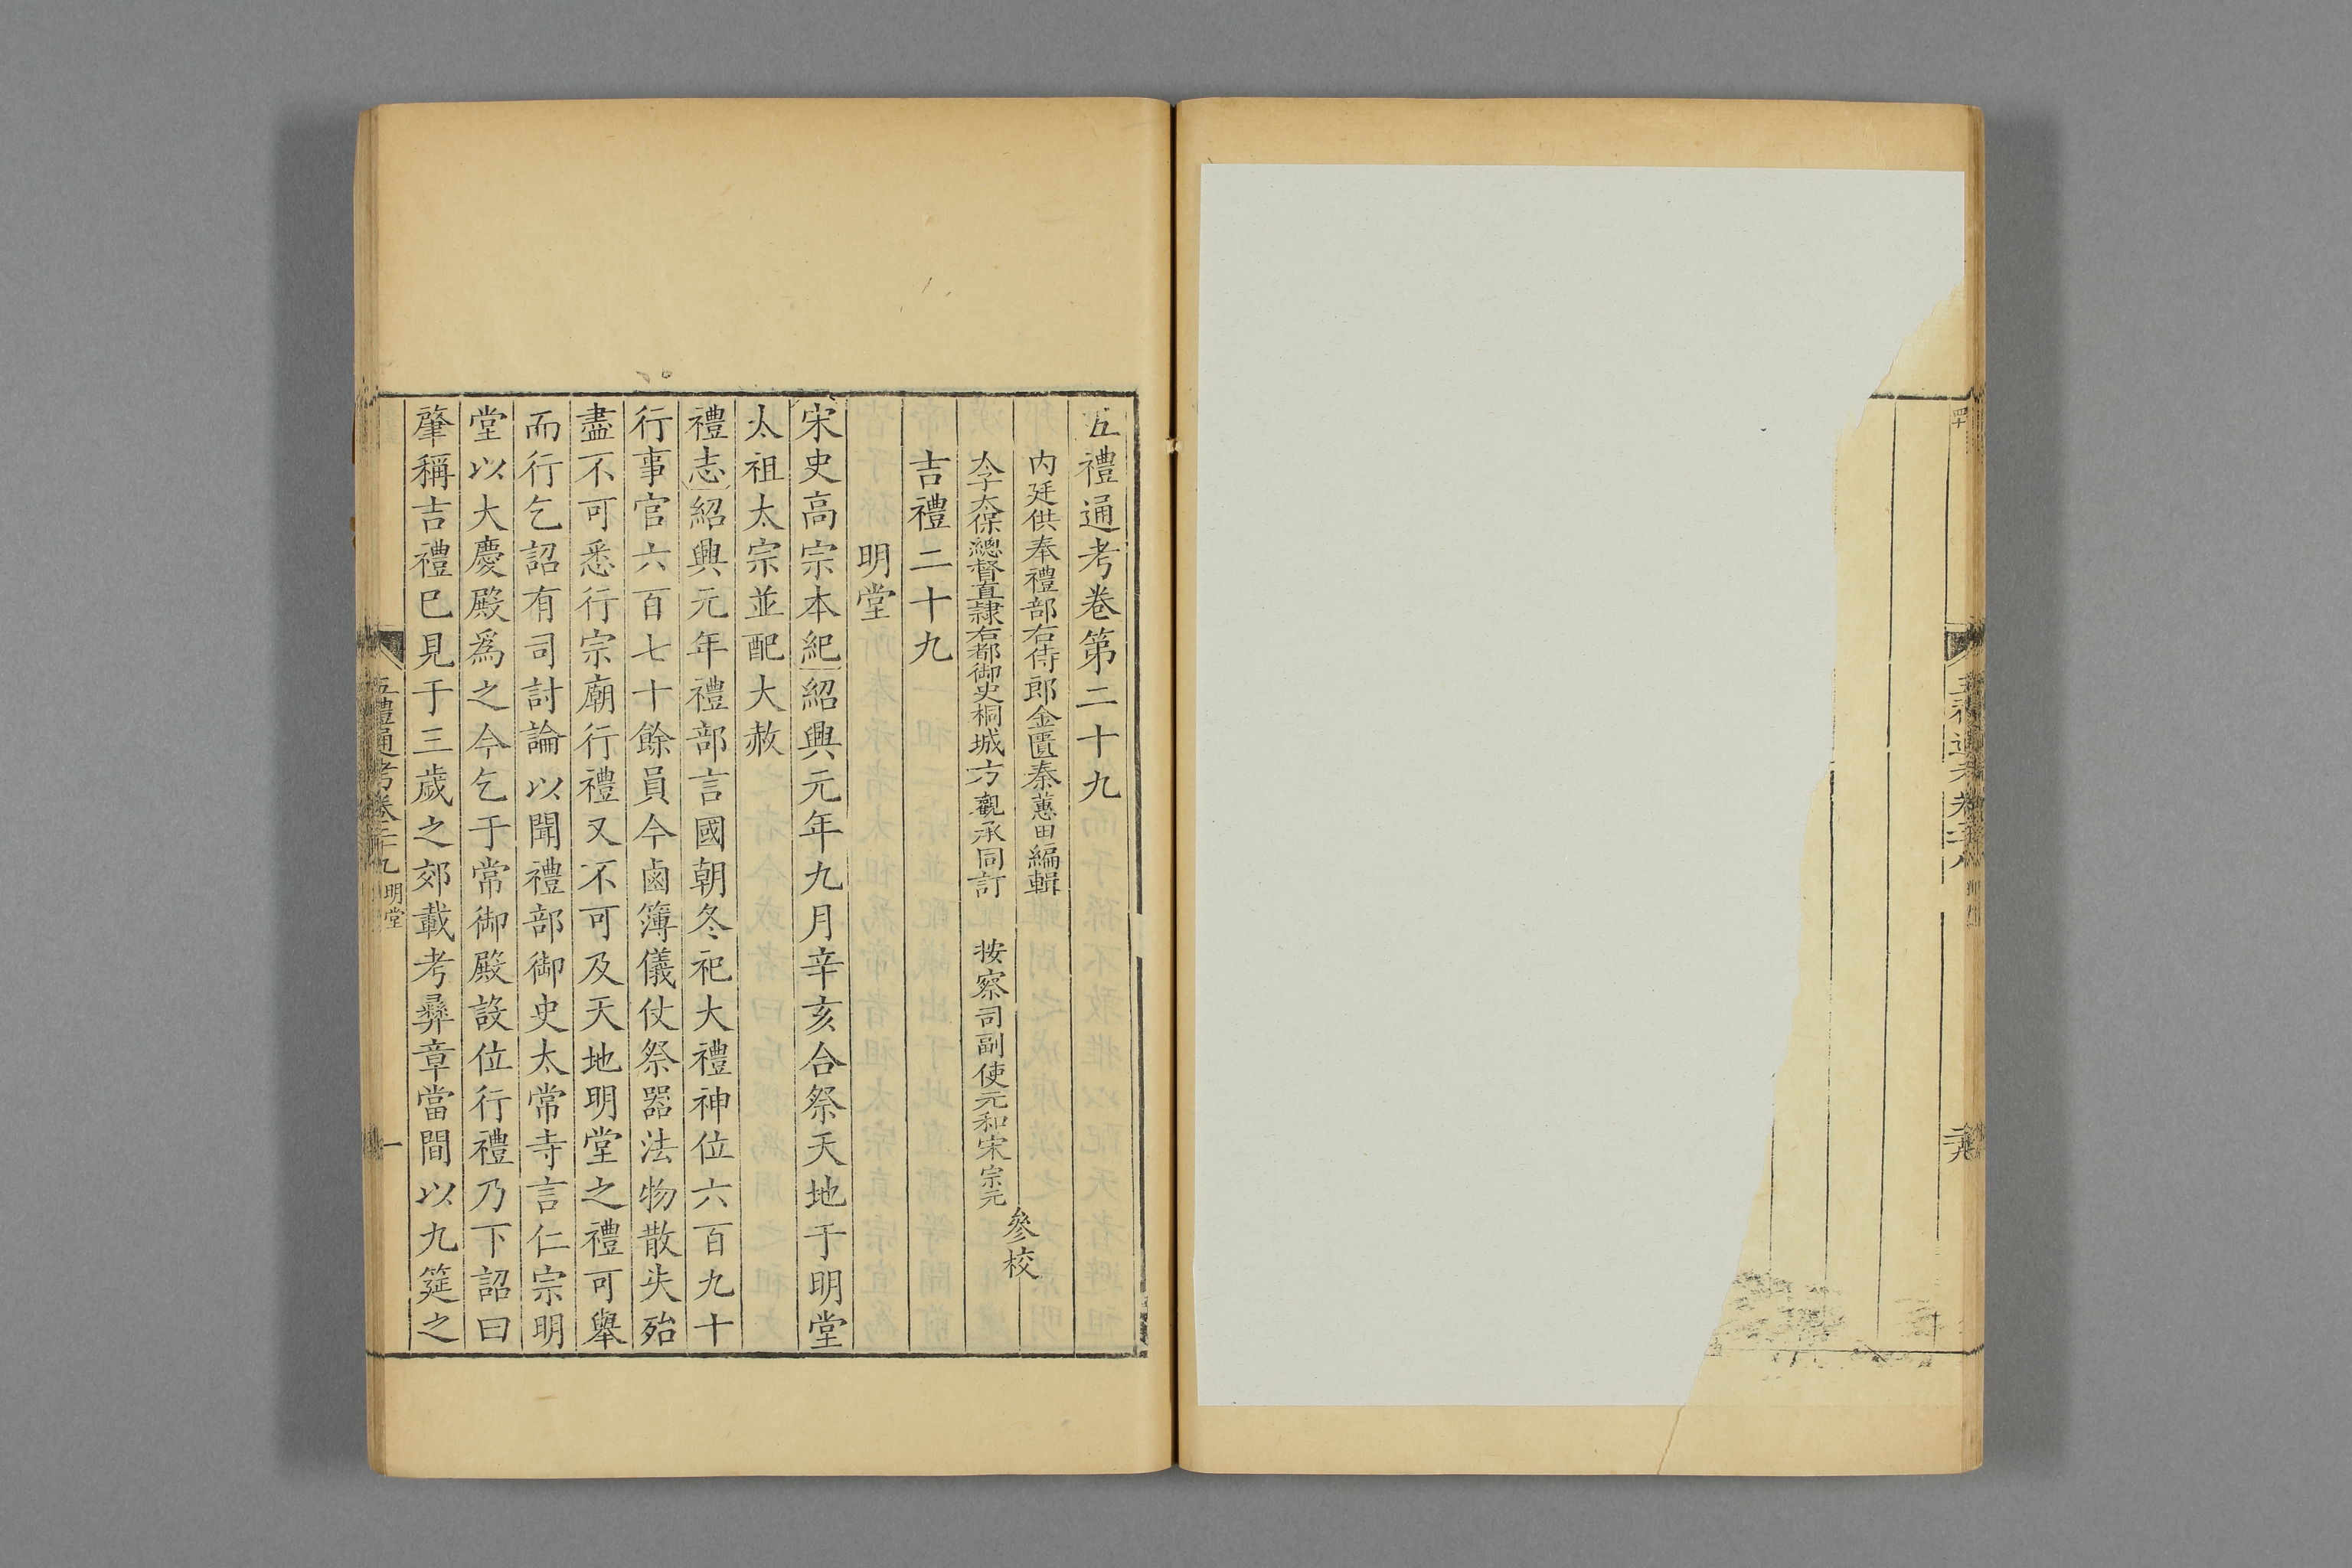 五禮通考卷第二十九
內廷供奉禮部右侍郎金匱秦蕙田編輯
太子太保總督直隸右都御史桐城方觀承同訂　按察司副使元和宋宗元
參校
吉禮二十九
明堂
宋史高宗本紀紹興元年九月辛亥合祭天地于明堂
太祖太宗並配大赦
禮志紹興元年禮部言國朝冬祀大禮神位六百九十
行事官六百七十餘員今鹵簿儀仗祭器法物散失殆
盡不可悉行宗廟行禮又不可及天地明堂之禮可舉
而行乞詔有司討論以聞禮部御史太常寺言仁宗明
堂以大慶殿爲之今乞于常御殿設位行禮乃下詔曰
肇稱吉禮巳見于三歲之郊載考彝章當間以九筵之
五禮通考卷二十九 明堂
一